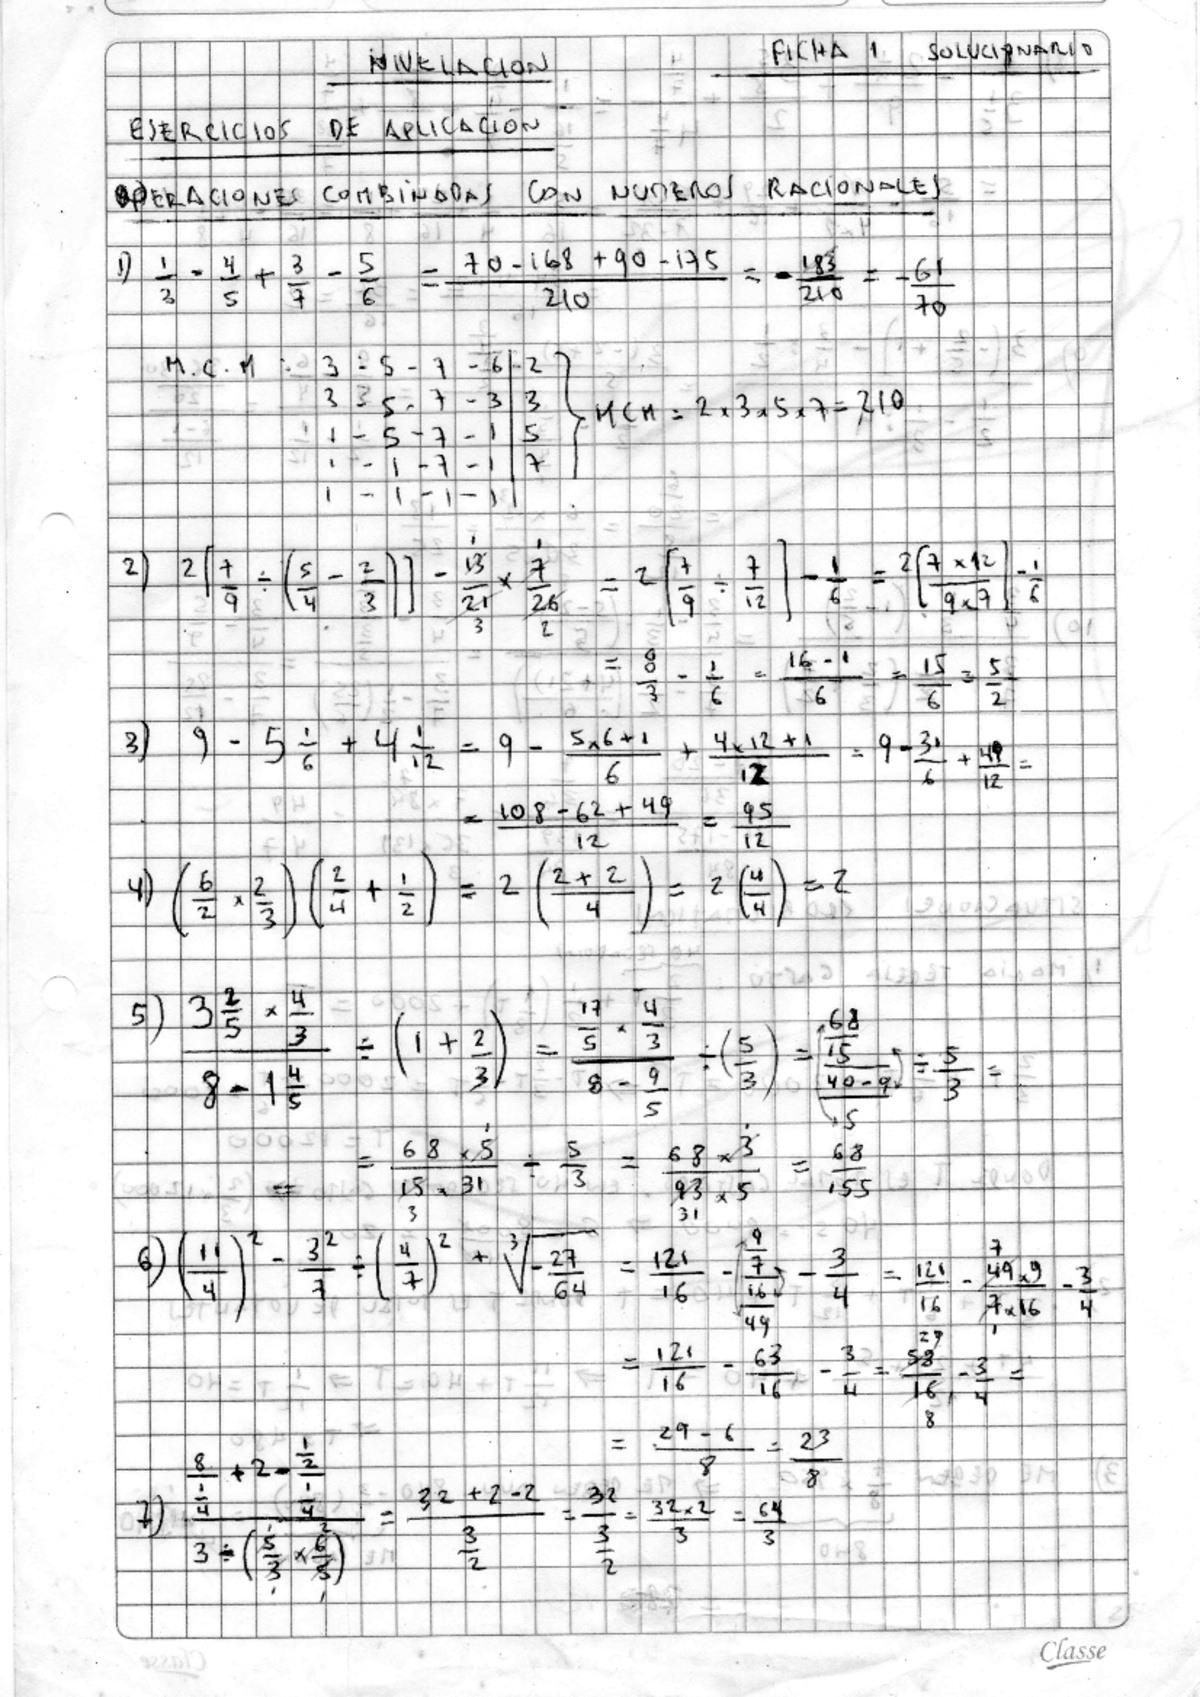 NIVELACION FICHA 1 SOLUCIONARIO
EJERCICIOS DE APLICACION
OPERACIONES COMBINADAS CON NUMEROS RACIONALES
1) 1/3 - 4/5 + 3/7 - 5/6 = (70 - 168 + 90 - 175)/210 = - 183/210 = - 61/70
M.C.M : 3 - 5 - 7 - 6 | 2
3 - 5 - 7 - 3 | 3
1 - 5 - 7 - 1 | 5 } MCM = 2 x 3 x 5 x 7 = 210
1 - 1 - 7 - 1 | 7
1 - 1 - 1 - 1 |
2) 2[7/9 ÷ (5/4 - 2/3)] - 13/21 x 7/26 = 2[7/9 ÷ 7/12] - 1/6 = 2[(7 x 12)/(9 x 7)] - 1/6
= 8/3 - 1/6 = (16 - 1)/6 = 15/6 = 5/2
3) 9 - 5 1/6 + 4 1/12 = 9 - (5x6+1)/6 + (4x12+1)/12 = 9 - 31/6 + 49/12 =
= (108 - 62 + 49)/12 = 95/12
4) (6/2 x 2/3)(2/4 + 1/2) = 2((2+2)/4) = 2(4/4) = 2
5) (3 2/5 x 4/3)/(8 - 1 4/5) ÷ (1 + 2/3) = (17/5 x 4/3)/(8 - 9/5) ÷ (5/3) = (68/15)/((40-9)/5) ÷ 5/3 =
= (68 x 5)/(15 x 31) ÷ 5/3 = (68 x 3)/(93 x 5) = 68/155
6) (11/4)² - 3²/7 ÷ (4/7)² + ³√(-27/64) = 121/16 - (9/7)/(16/49) - 3/4 = 121/16 - (49x9)/(7x16) - 3/4
= 121/16 - 63/16 - 3/4 = 58/16 - 3/4 =
= (29 - 6)/8 = 23/8
7) (8/(1/4) + 2 - (1/2)/(1/4))/(3 ÷ (5/3 x 6/5)) = (32 + 2 - 2)/(3/2) = 32/(3/2) = (32x2)/3 = 64/3
Classe